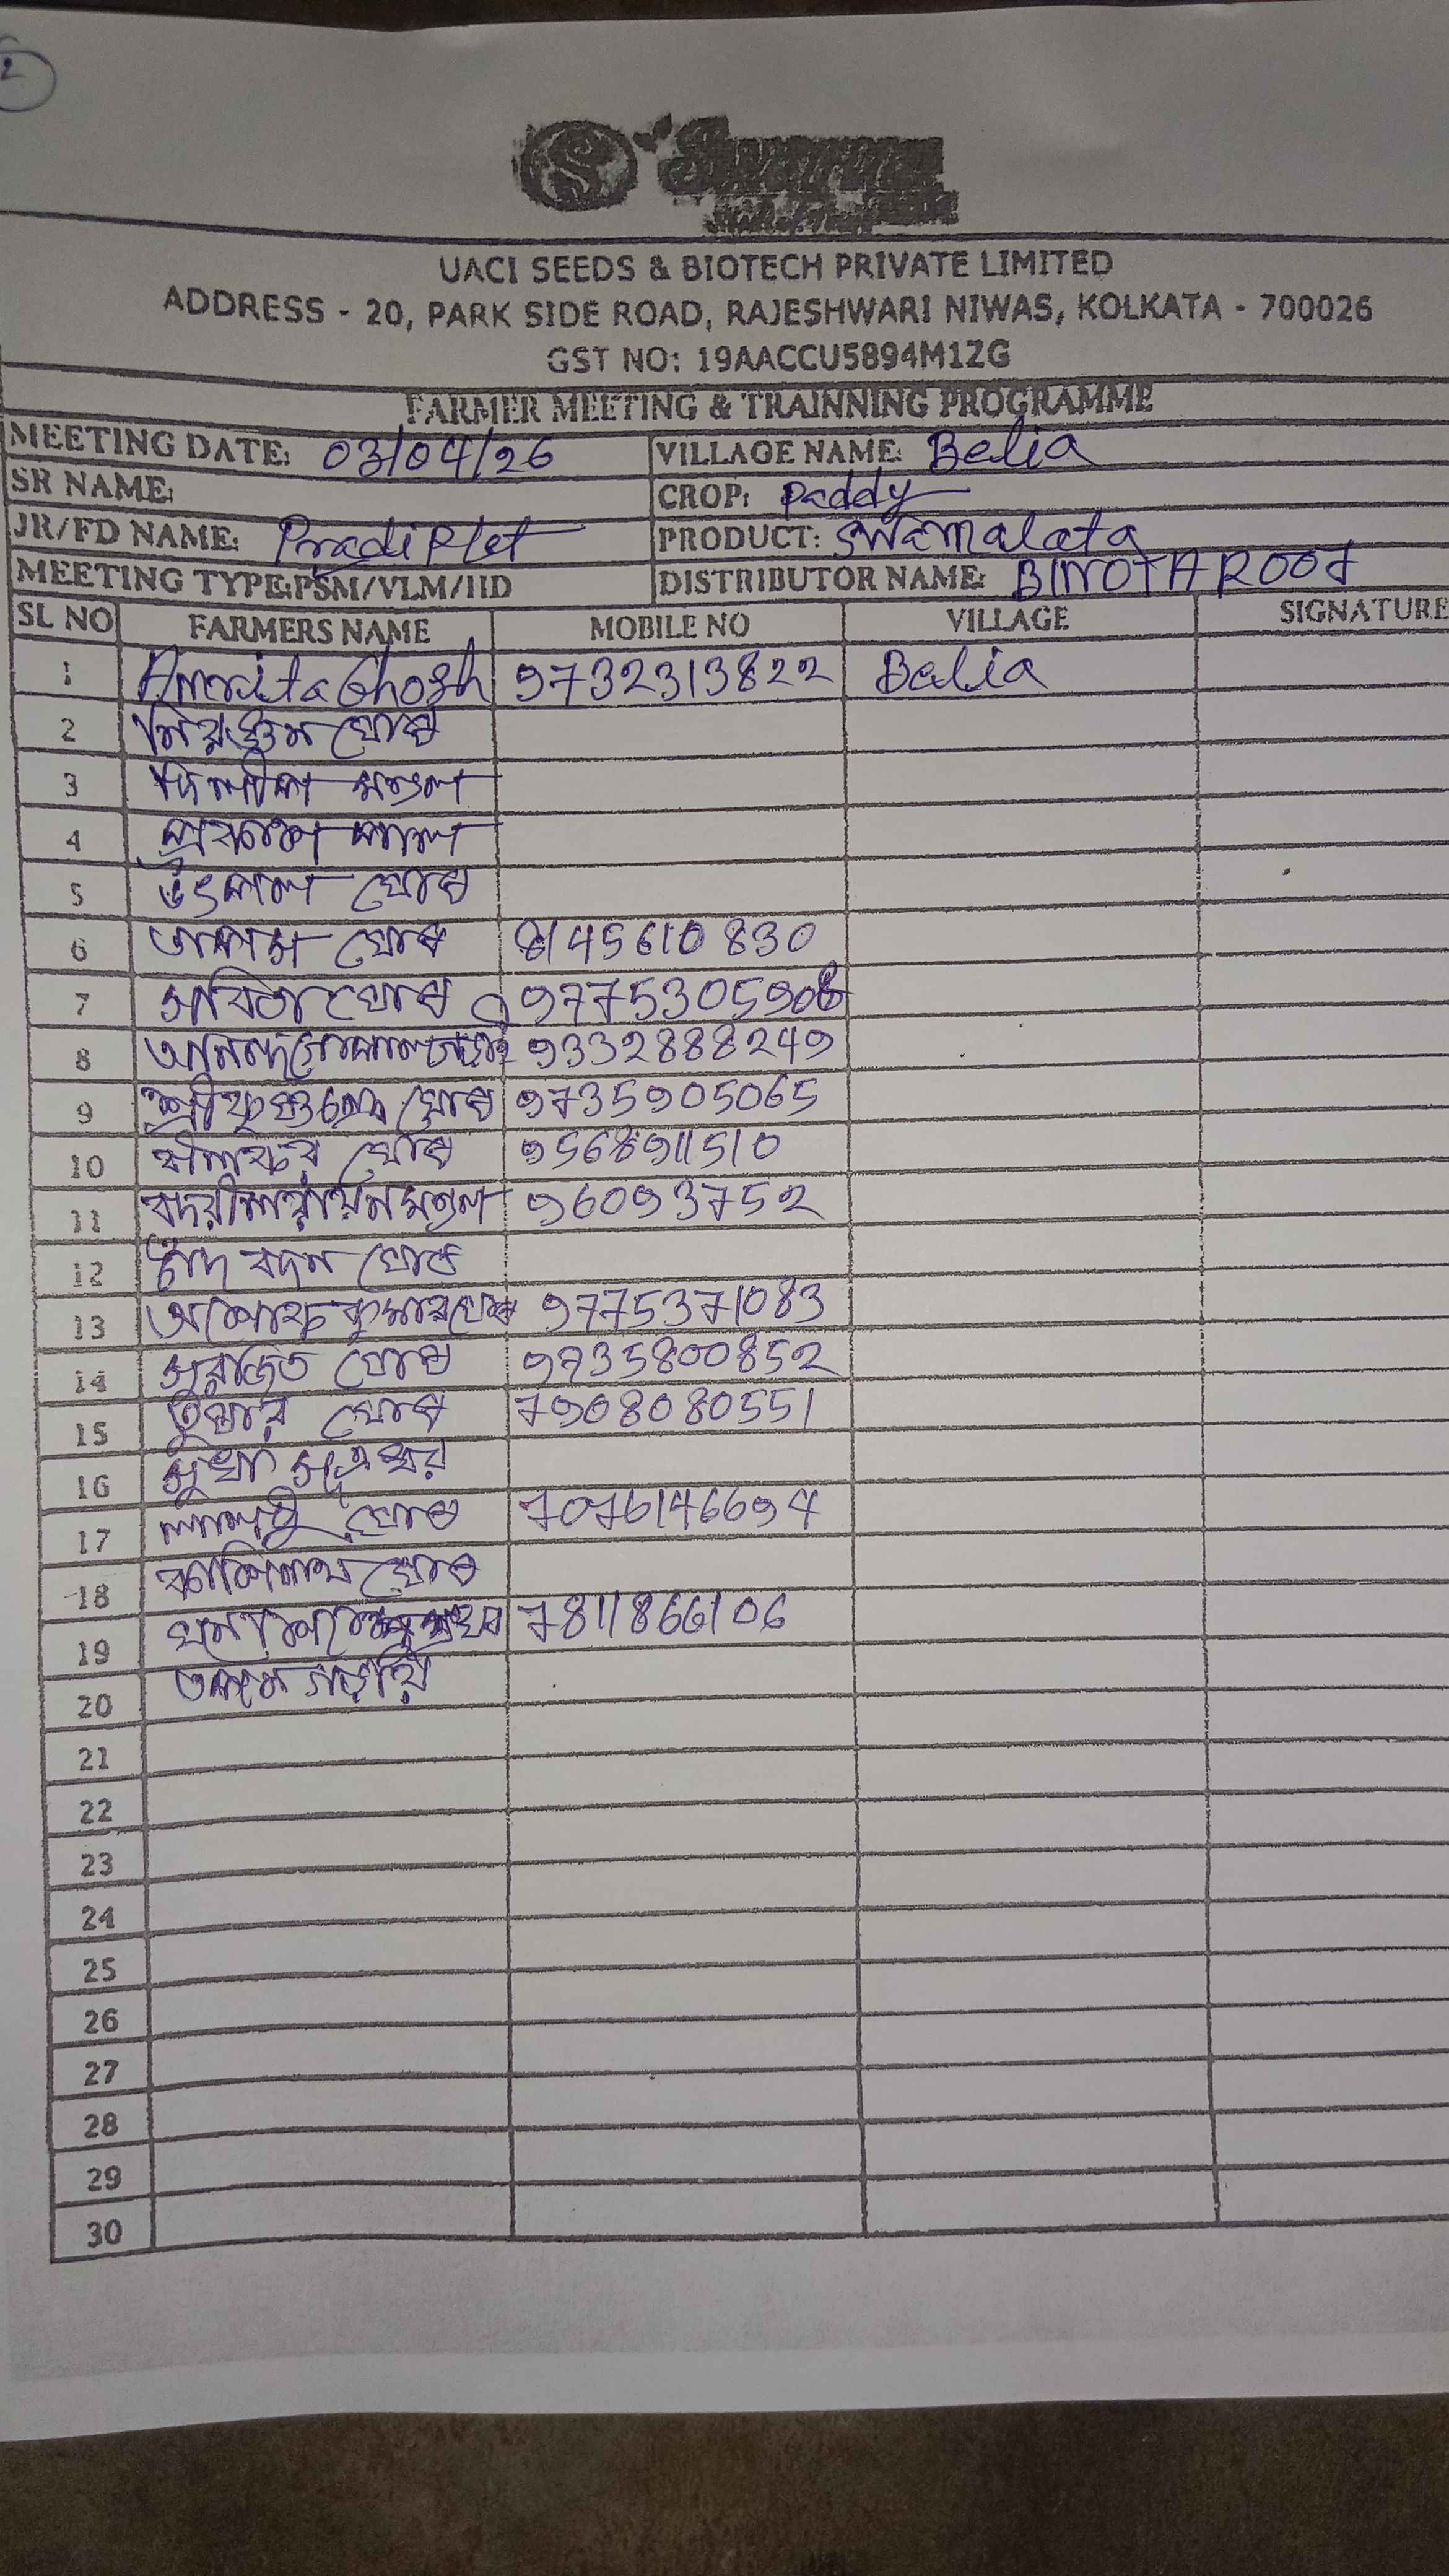 2
UACI SEEDS & BIOTECH PRIVATE LIMITED
ADDRESS - 20, PARK SIDE ROAD, RAJESHWARI NIWAS, KOLKATA - 700026
GST NO: 19AACCU5894M1ZG
FARMER MEETING & TRAINNING PROGRAMME
MEETING DATE: 03/04/26 VILLAGE NAME: Belia
SR NAME: CROP: Paddy
JR/FD NAME: Pradip Let PRODUCT: Swarnalata
MEETING TYPE:PSM/VLM/IID DISTRIBUTOR NAME:
SL NO FARMERS NAME MOBILE NO VILLAGE SIGNATURE
1 Amrita Ghosh 9732313822 Belia
2 ঘোষ
3 দিলীপ মণ্ডল
4 প্রকাশ পাল
5 উৎপল ঘোষ
6 তাপস ঘোষ 8145610830
7 সবিতা ঘোষ 977530590
8 9332888249
9 ঘোষ 9735905065
10 ঘোষ 9568911510
11 মণ্ডল 96093752
12 চাঁদ বদন ঘোষ
13 অশোক কুমার ঘোষ 9775371083
14 সুরজিত ঘোষ 9735800852
15 তুষার ঘোষ 7908080551
16 সূত্রধর
17 লালটু ঘোষ 7076146694
18 ঘোষ
19 7811866106
20 তপন গড়াই
21
22
23
24
25
26
27
28
29
30